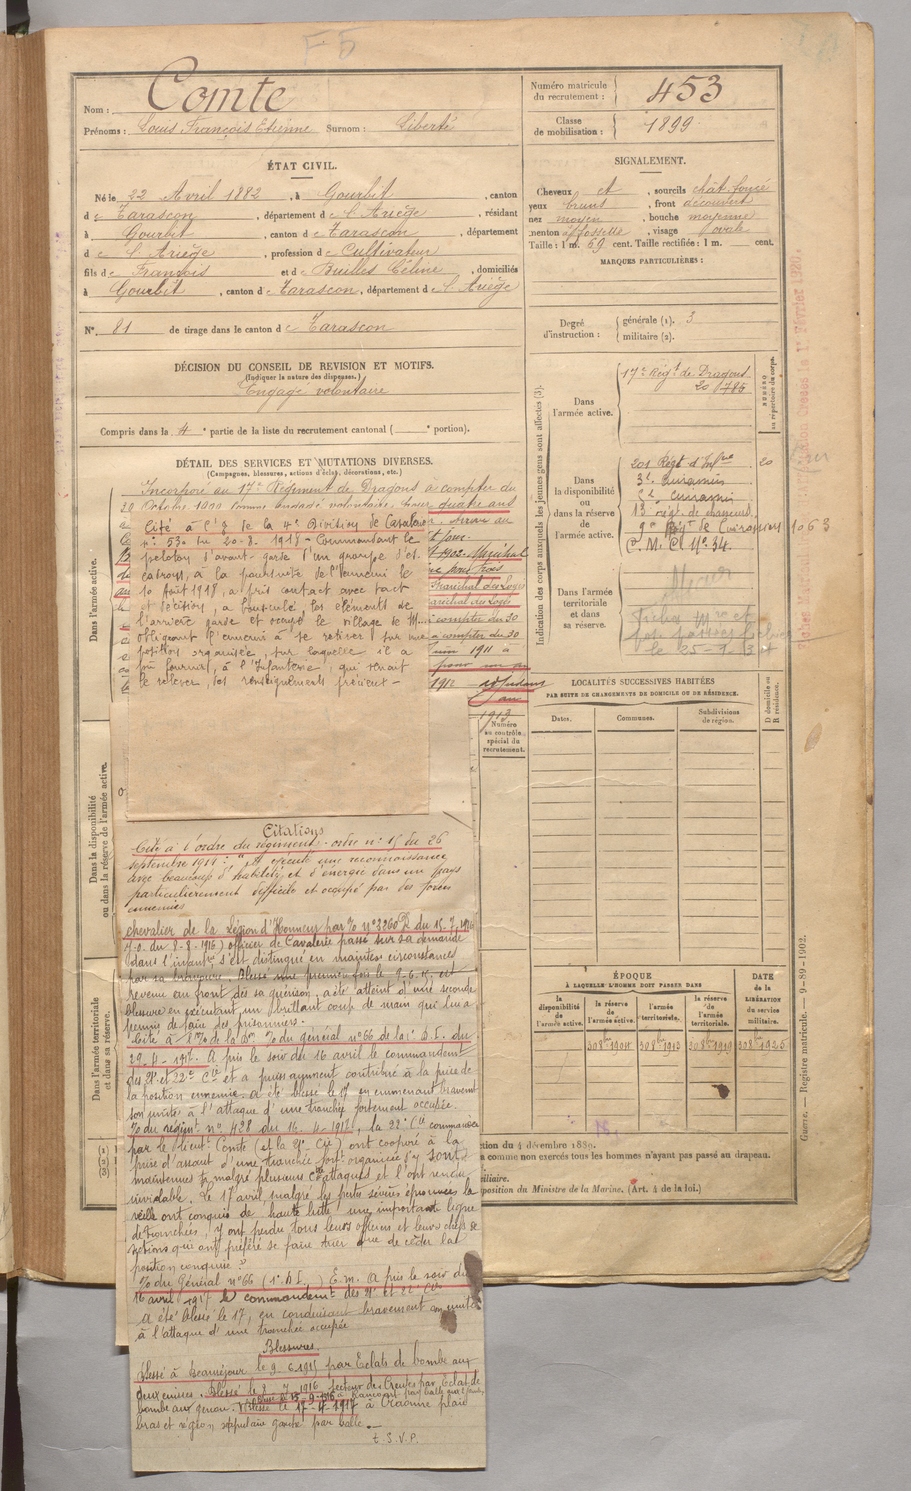 F5
Nom : Comte
Prénoms : Louis François Etienne Surnom : Liberté
Numéro matricule du recrutement : 453
Classe de mobilisation : 1899
ÉTAT CIVIL.
Né le 22 Avril 1882, à Gourbit, canton
d e Tarascon, département d e l'Ariège, résidant
à Gourbit, canton d e Tarascon, département
d e l'Ariège, profession d e Cultivateur
fils d e François et d e Builles Céline, domiciliés
à Gourbit, canton d e Tarascon, département d e l'Ariège
N° 81 de tirage dans le canton d e Tarascon
SIGNALEMENT.
Cheveux et sourcils chât. foncé
yeux bruns, front découvert
nez moyen, bouche moyenne
menton à fossette, visage ovale
Taille : 1 m. 69 cent. Taille rectifiée : 1 m. cent.
MARQUES PARTICULIÈRES :
Degré d'instruction : générale (1). 3
militaire (2).
DÉCISION DU CONSEIL DE REVISION ET MOTIFS.
(Indiquer la nature des dispenses.)
Engagé volontaire
Compris dans la 4e partie de la liste du recrutement cantonal ( e portion).
DÉTAIL DES SERVICES ET MUTATIONS DIVERSES.
(Campagnes, blessures, actions d'éclat, décorations, etc.)
Incorporé au 17e Régiment de Dragons à compter du
20 Octobre 1900 comme engagé volontaire pour quatre ans
Cité à l'O de la 4e Division de Cavalerie
n° 530 du 20-8-1918 - Commandant le
peloton d'avant-garde d'un groupe d'es
cadrons, à la poursuite de l'ennemi le
10 Août 1918, a pris contact avec tact
et décision, a bousculé les éléments de
l'arrière garde et occupé le village de M...
obligeant l'ennemi à se retirer sur une
position organisée, sur laquelle il a
pu fournir, à l'Infanterie, qui venait
le relever, des renseignements précieux -
à compter du 30
à compter du 30
1911 à
1912
1913
Citations
Cité à l'ordre du régiment - ordre n° 15 du 26
septembre 1914 : "A exécuté une reconnaissance
avec beaucoup d'habileté et d'énergie dans un pays
particulièrement difficile et occupé par des forces
ennemies
chevalier de la Légion d'Honneur par
J.O. du 8-8-1916) officier de Cavalerie passé sur sa demande
dans l'infantie s'est distingué en maintes circonstances
par sa bravoure. Blessé une première fois le 9-6-15, est
revenu au front dès sa guérison, a été atteint d'une seconde
blessure en exécutant un brillant coup de main qui lui a
permis de faire des prisonniers.
Cité à du général n° 66 de la 1e D.I. du
29-4-1917. A pris le soir du 16 avril le commandement
des 21e et 22e Cie et a puissamment contribué à la prise de
la position ennemie. A été blessé le 17 en emmenant bravement
son unité à l'attaque d'une tranchée fortement occupée.
du régimt n° 428 du 16-4-1917, la 22e Cie commandée
par le lieut Comte (et la 21e Cie) ont coopéré à la
prise d'assaut d'une tranchée fort organisée, s'y sont
maintenues malgré plusieurs c. attaques et l'ont rendue
inviolable. Le 17 avril malgré les pertes sévères éprouvées la
veille ont conquis de haute lutte une importante ligne
de tranchées, y ont perdu tous leurs officiers et leurs chefs de
sections qui ont préféré se faire tuer que de céder la
position conquise."
du Général n° 66 (1e D.I.) E.M. A pris le soir du
16 avril 1917 le commandemt des 21e et 22e Cie
A été blessé le 17, en conduisant bravement son unité
à l'attaque d'une tranchée occupée
Blessures.
Blessé à Beauséjour le 9-6-1915 par Eclats de bombe aux
deux cuisses. Blessé le 2-7-1916 secteur des Creutes par Eclat de
bombe au genou. Blessé le 17-4-1917 à Craonne plaie
bras et région scapulaire gauche par balle. —
T.S.V.P.
Indication des corps auxquels les jeunes gens sont affectés (3).
Dans l'armée active.
17e Régt de Dragons
20 1785
NUMÉRO au répertoire du corps.
Dans la disponibilité ou dans la réserve de l'armée active.
201 Régt d'Infie 20
3e Cuirassiers
Cuirassiers
13e rég. de chasseurs
9e Régt de Cuirassiers 1063
C.M. Cl N° 34.
Dans l'armée territoriale et dans sa réserve.
le 25-9-34
LOCALITÉS SUCCESSIVES HABITÉES
PAR SUITE DE CHANGEMENTS DE DOMICILE OU DE RÉSIDENCE.
Dates. Communes. Subdivisions de région. D domicile ou R résidence.
Numéro au contrôle spécial du recrutement.
ÉPOQUE
À LAQUELLE L'HOMME DOIT PASSER DANS
la disponibilité de l'armée active. la réserve de l'armée active. l'armée territoriale. la réserve de l'armée territoriale.
DATE de la LIBÉRATION du service militaire.
30 8bre 1904 30 8bre 1913 30 8bre 1919 30 8bre 1925
Dans l'armée active.
Dans la disponibilité ou dans la réserve de l'armée active.
Dans l'armée territoriale et dans sa réserve.
(1)
(2)
(3)
ction du 4 décembre 1889.
a comme non exercés tous les hommes n'ayant pas passé au drapeau.
iliaire.
position du Ministre de la Marine. (Art. 4 de la loi.)
Guerre. — Registre matricule. — 3-89-1902.